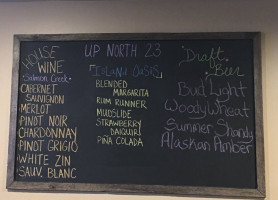 HOUSE
WINE
Salmon Creek
CABERNET
SAUVIGNON
MERLOT
PINOT NOIR
CHARDONNAY
PINOT GRIGIO
WHITE ZIN
SAUV. BLANC
UP NORTH 23
ISLAND OASIS
BLENDED
MARGARITA
RUM RUNNER
MUDSLIDE
STRAWBERRY
DAIQUIRI
PIÑA COLADA
Draft
Beer
Bud Light
Woody Wheat
Summer Shandy
Alaskan Amber